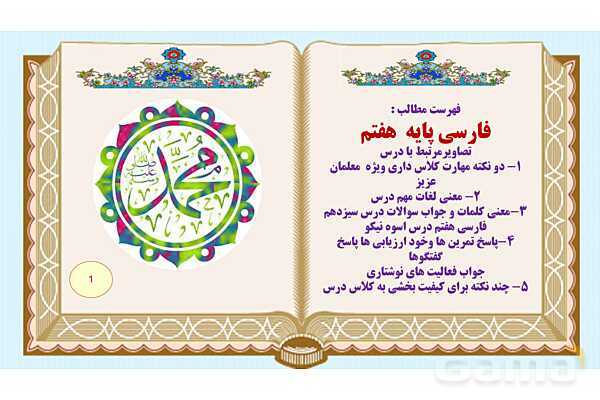 فهرست مطالب :
فارسی پایه هفتم
تصاویرمرتبط با درس
۱- دو نکته مهارت کلاس داری ویژه معلمان
عزیز
۲- معنی لغات مهم درس
۳-معنی کلمات و جواب سوالات درس سیزدهم
فارسی هفتم درس اسوه نیکو
۴-پاسخ تمرین ها وخود ارزیابی ها پاسخ
گفتگوها
جواب فعالیت های نوشتاری
۵- چند نکته برای کیفیت بخشی به کلاس درس
محمد
صلی الله علیه وسلم
1
Gama